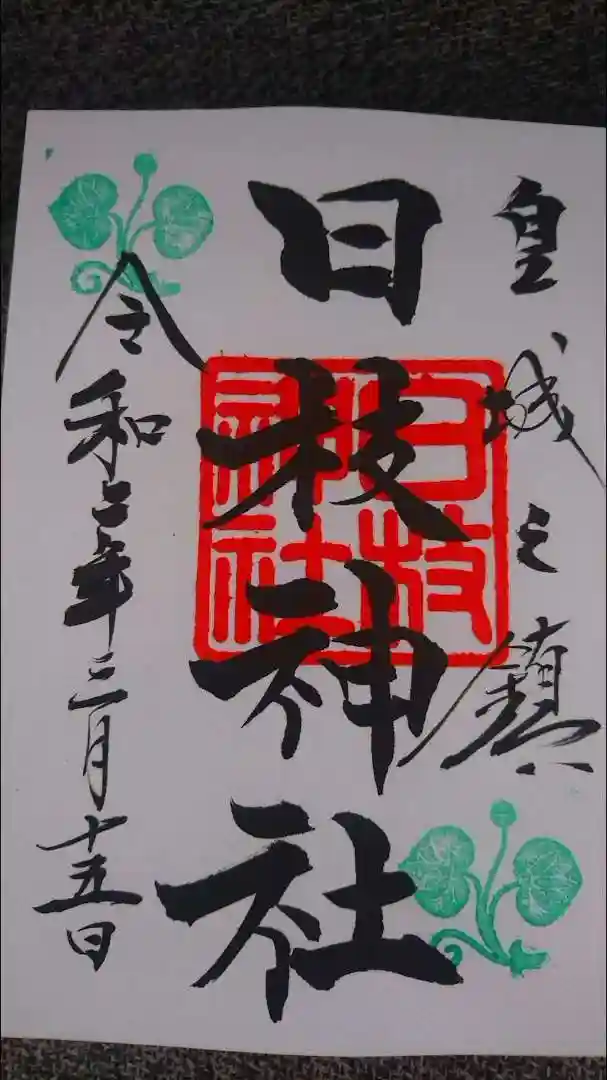 皇城之鎮
日枝神社
日枝神社
令和二年三月十五日